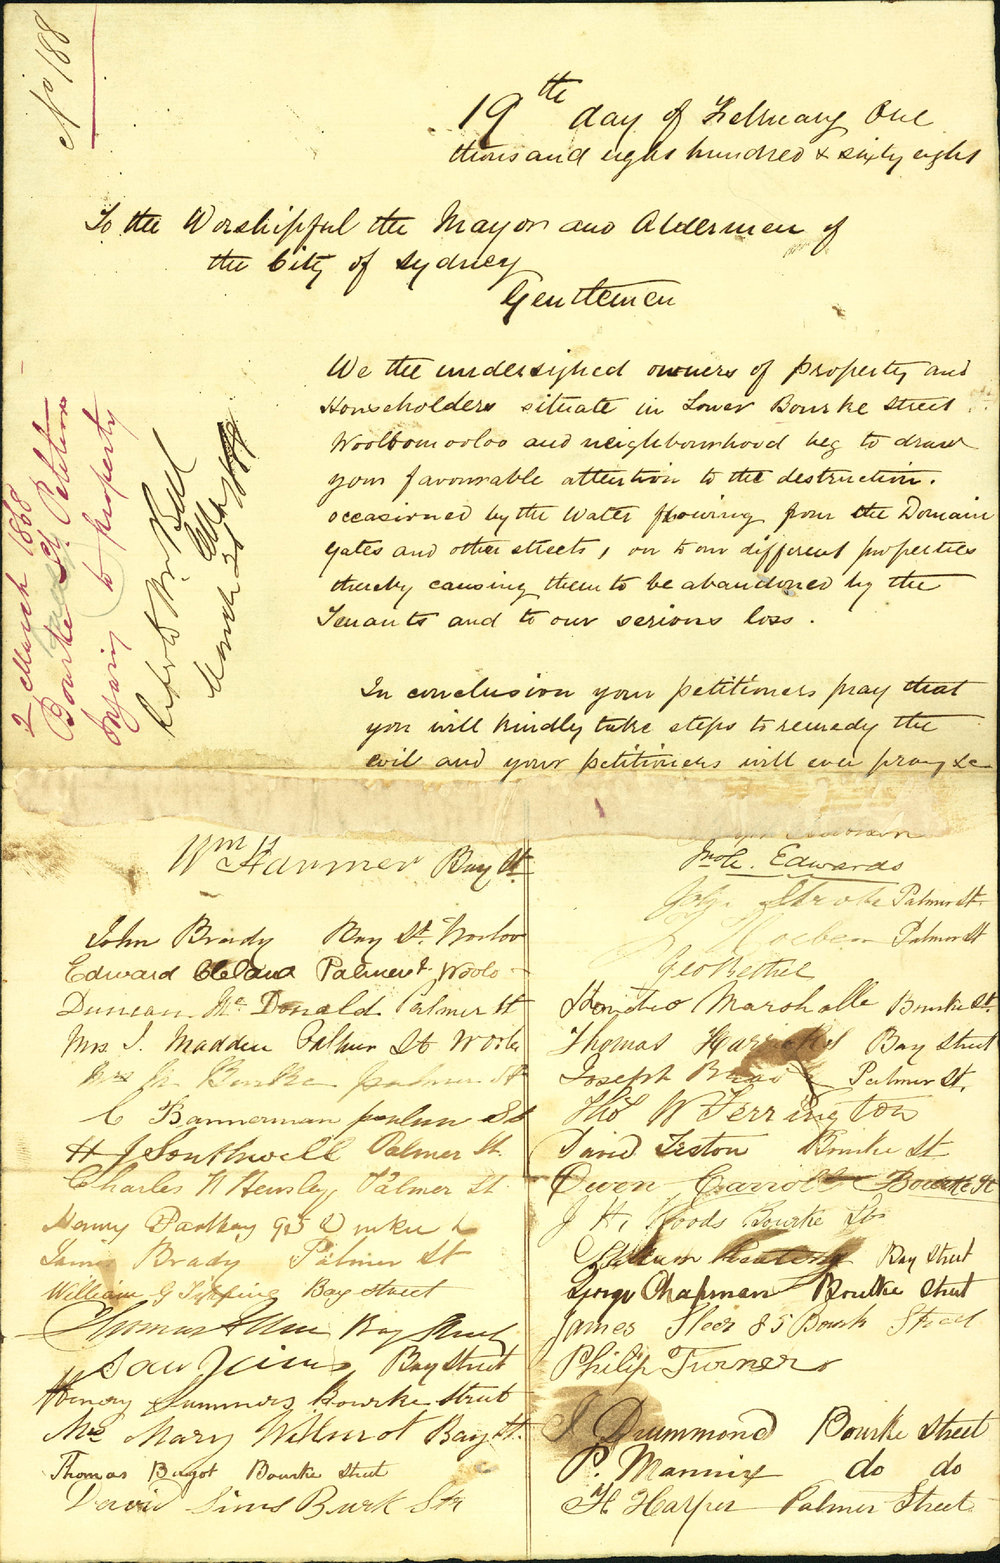 No 188
19th day of February One
thousand eight hundred & sixty eight
To the Worshipful the Mayor and Aldermen of
the City of Sydney
Gentlemen
We the undersigned owners of property and
Householders situate in Lower Bourke Street
Woolloomooloo and neighbourhood beg to draw
your favourable attention to the destruction.
occasioned by the Water flowing from the Domain
gates and other streets, on to our different properties
thereby causing them to be abandoned by the
Tenants and to our serious loss.
In conclusion your petitioners pray that
you will kindly take steps to remedy the
evil and your petitioners will ever pray &c
2 March 1868
Bourke St Petition
Injury to property
Bell
March
Wm Farmer Bay St
John Brady Bay St
Edward Cleland Palmer St
Duncan McDonald Palmer St
Mrs J. Madden St
Burke palmer St
C Bannerman
H J Southwell Palmer St
Charles Hensley Palmer St
Henry
James Brady Palmer St
William G Tipping Bay Street
Thomas Bay Street
Bay Street
Henry Summers Bourke Street
Mrs Mary Wilmot Bay St.
Thomas Bugot Bourke Street
David Sims Burk Str
Edwards
Palmer St.
Palmer St
Geo Bethel
Marshalle Bourke St.
Thomas Bay Street
Joseph Palmer St.
Thos W Ferrington
David Bourke St
Owen Carroll Bourke St
J H. Woods Bourke St
Bay Street
George Chapman Bourke Street
James 85 Bourk Street
Philip Turner
J Drummond Bourke Street
P. Mannix do do
H. Harper Palmer Street